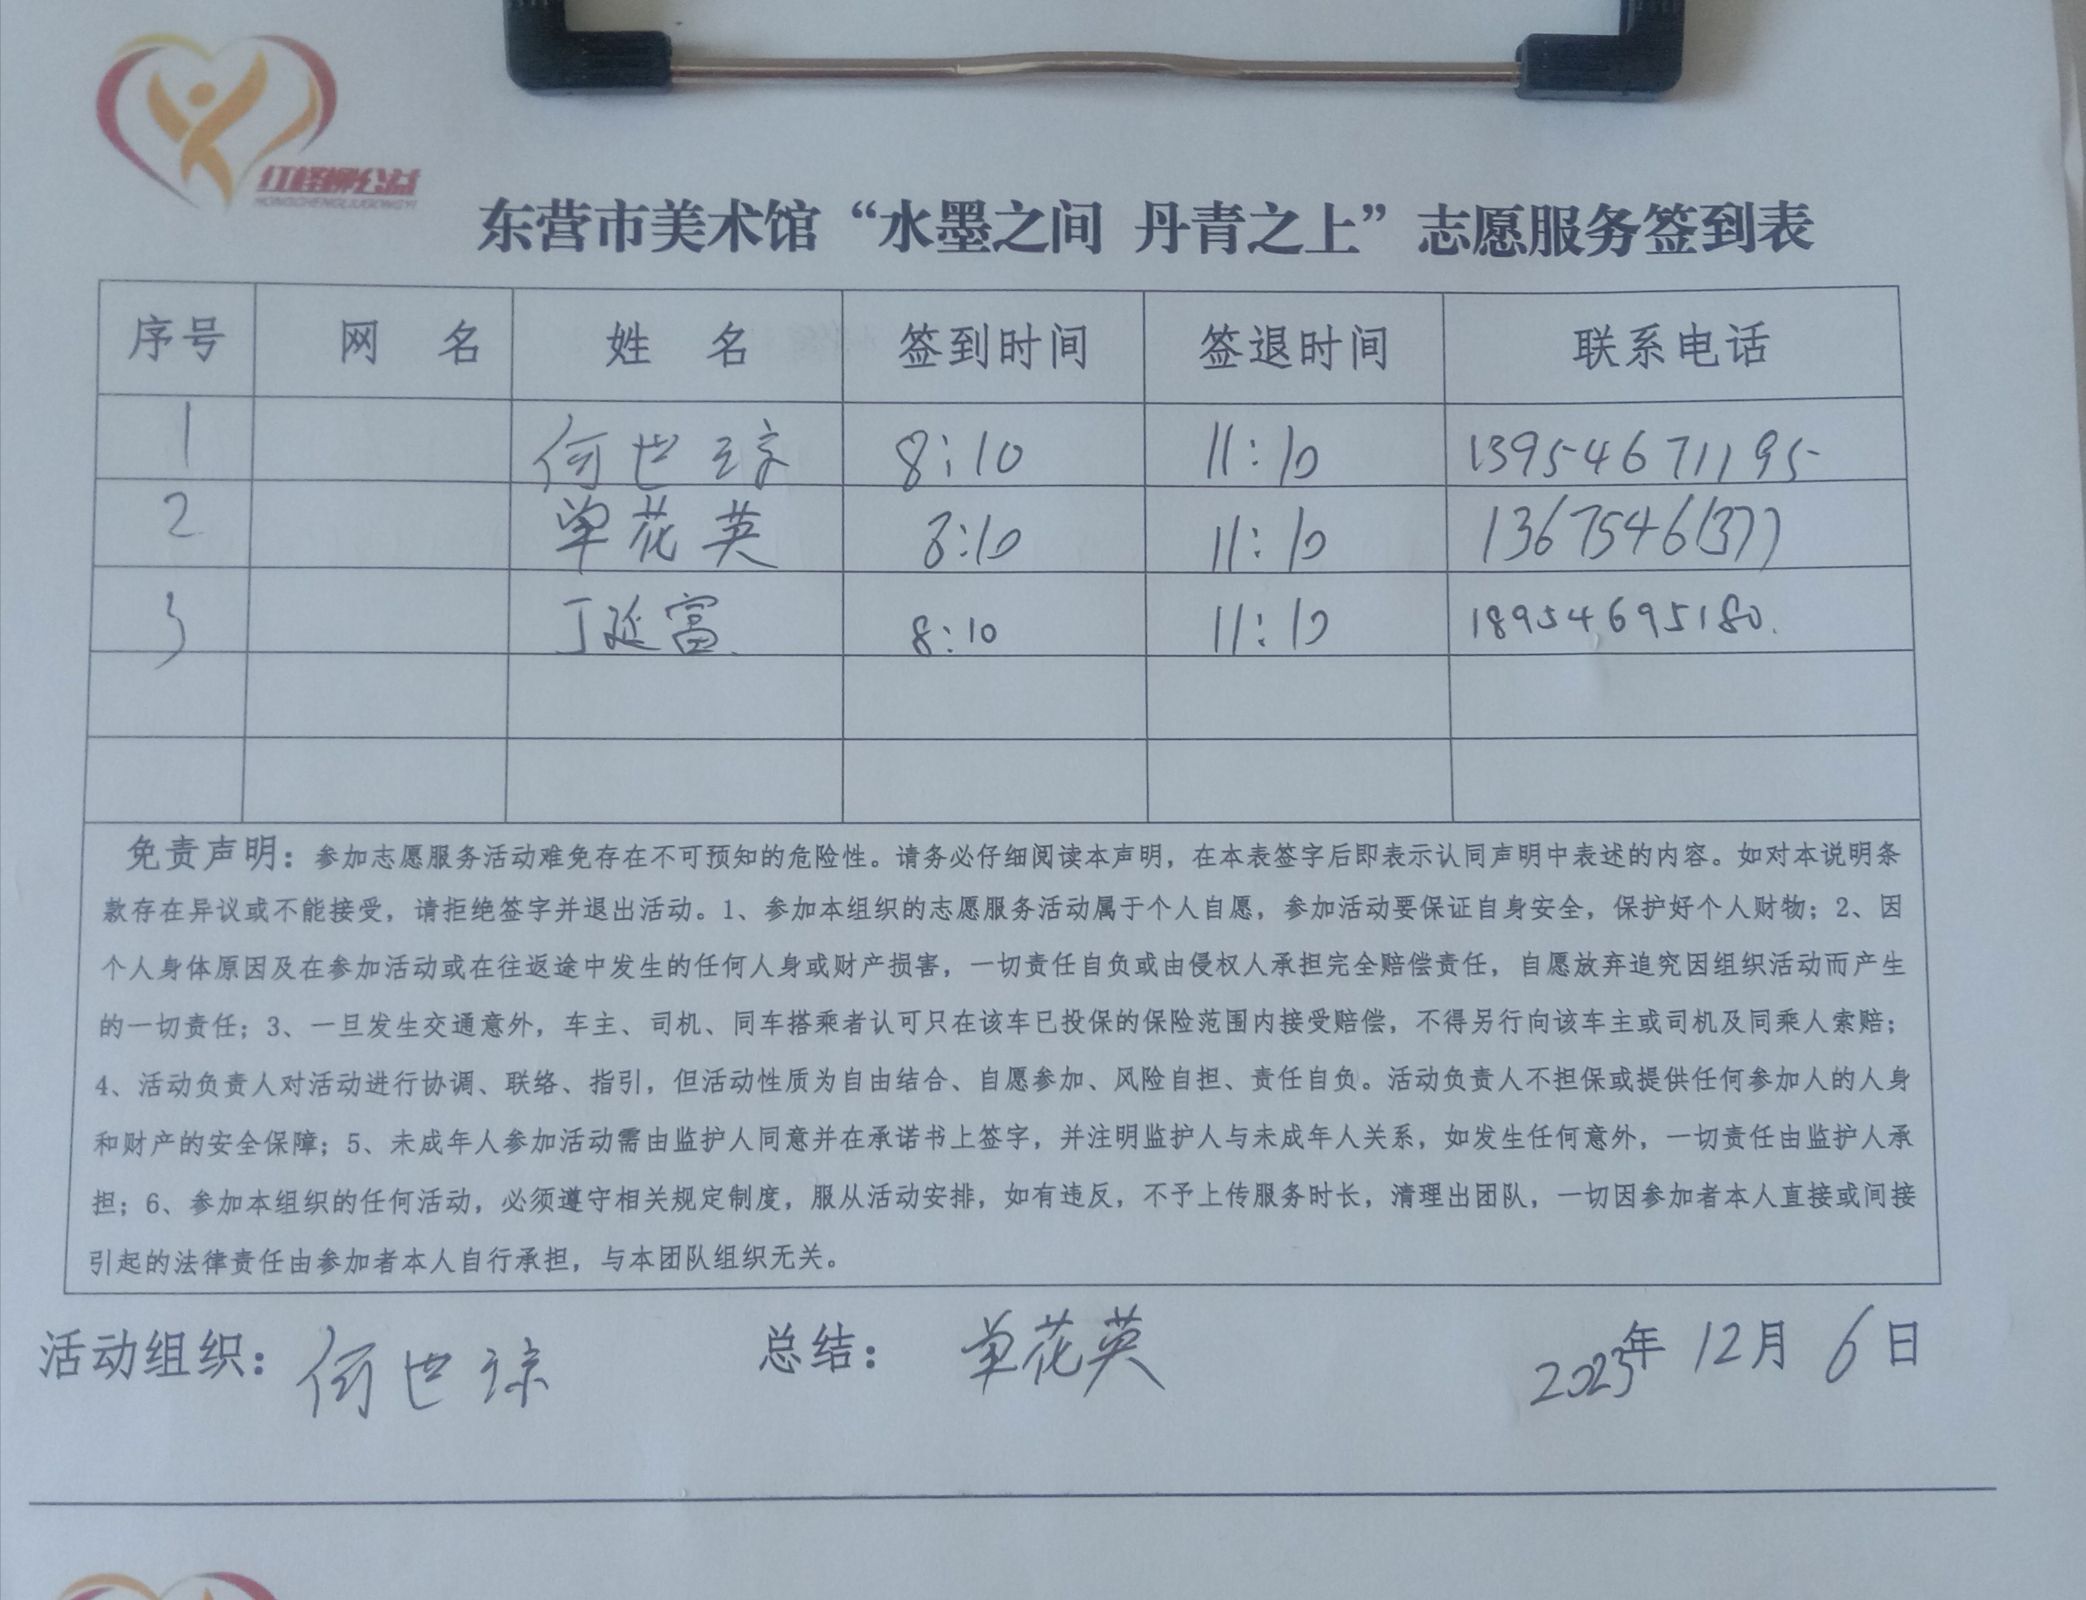 红柽柳公益
HONGCHENGLIUGONGYI
东营市美术馆“水墨之间 丹青之上”志愿服务签到表
序号 网 名 姓 名 签到时间 签退时间 联系电话
1 何世琼 8:10 11:10 13954671195
2 单花英 8:10 11:10 13675461377
3 丁延富 8:10 11:10 18954695180.
免责声明：参加志愿服务活动难免存在不可预知的危险性。请务必仔细阅读本声明，在本表签字后即表示认同声明中表述的内容。如对本说明条
款存在异议或不能接受，请拒绝签字并退出活动。1、参加本组织的志愿服务活动属于个人自愿，参加活动要保证自身安全，保护好个人财物；2、因
个人身体原因及在参加活动或在往返途中发生的任何人身或财产损害，一切责任自负或由侵权人承担完全赔偿责任，自愿放弃追究因组织活动而产生
的一切责任；3、一旦发生交通意外，车主、司机、同车搭乘者认可只在该车已投保的保险范围内接受赔偿，不得另行向该车主或司机及同乘人索赔；
4、活动负责人对活动进行协调、联络、指引，但活动性质为自由结合、自愿参加、风险自担、责任自负。活动负责人不担保或提供任何参加人的人身
和财产的安全保障；5、未成年人参加活动需由监护人同意并在承诺书上签字，并注明监护人与未成年人关系，如发生任何意外，一切责任由监护人承
担；6、参加本组织的任何活动，必须遵守相关规定制度，服从活动安排，如有违反，不予上传服务时长，清理出团队，一切因参加者本人直接或间接
引起的法律责任由参加者本人自行承担，与本团队组织无关。
活动组织：何世琼 总结：单花英 2023年12月6日